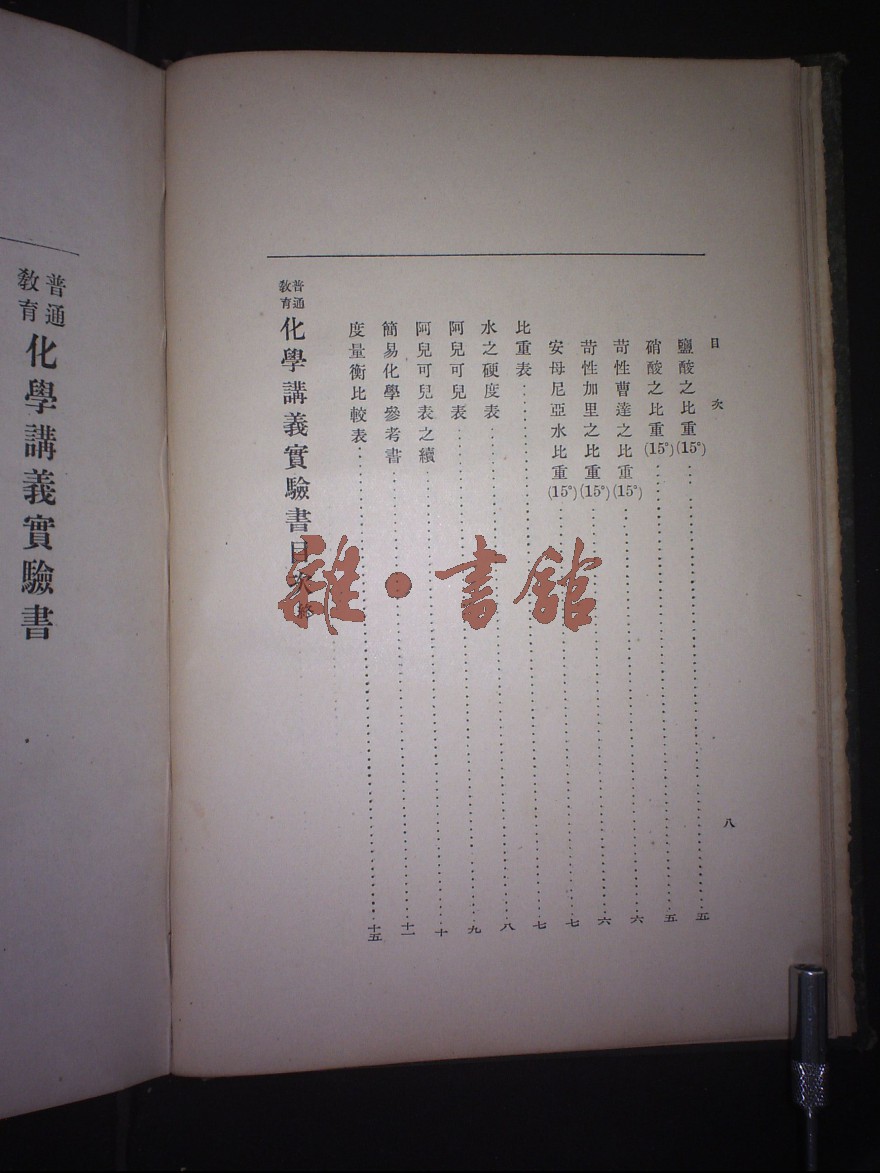 目次
八
鹽酸之比重(15°)……五
硝酸之比重(15°)……五
苛性曹達之比重(15°)……六
苛性加里之比重(15°)……六
安母尼亞水比重(15°)……七
比重表……七
水之硬度表……八
阿兒可兒表……九
阿兒可兒表之續……十
簡易化學參考書……十一
度量衡比較表……十五
普通教育化學講義實驗書目次終
普通教育化學講義實驗書
雜·書館